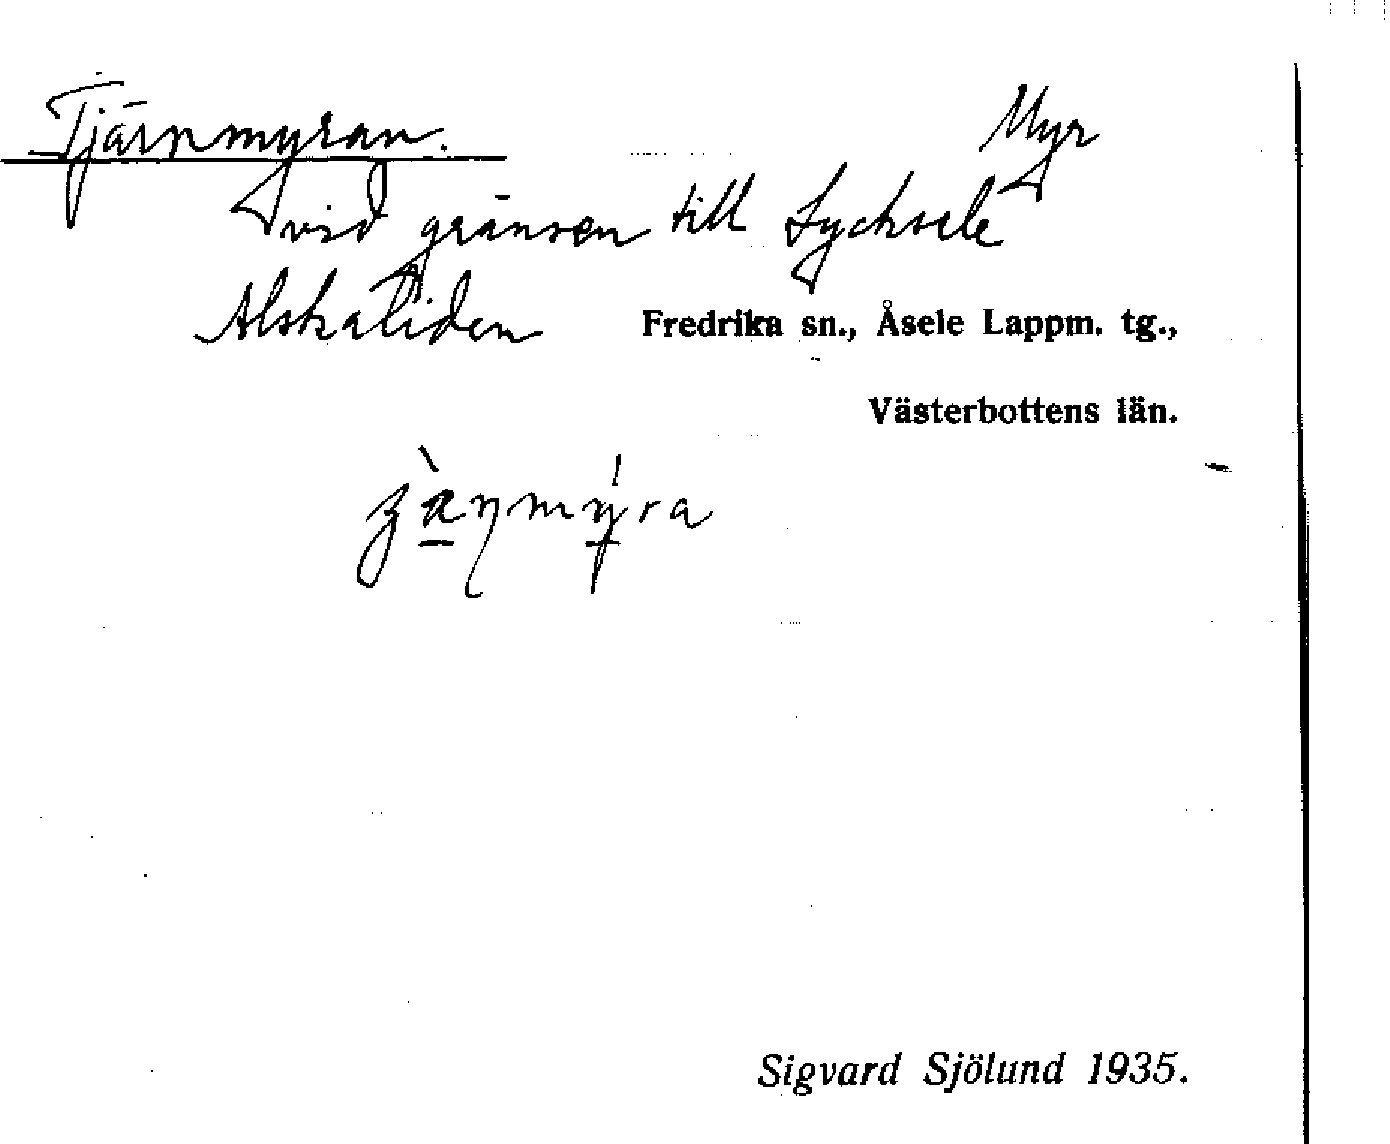 Tjärnmyran.
Myr
vid gränsen till Lycksele
Alskaliden
Fredrika sn., Åsele Lappm. tg.,
Västerbottens län.
Sigvard Sjölund 1935.